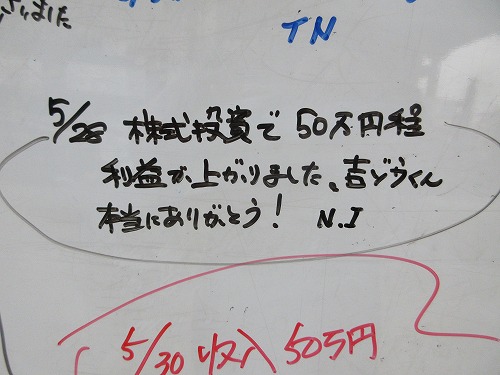 ざいました
TN
5/28 株式投資で50万円程
利益が上がりました、吉ぞうくん
本当にありがとう! N.I
5/30 収入50万円